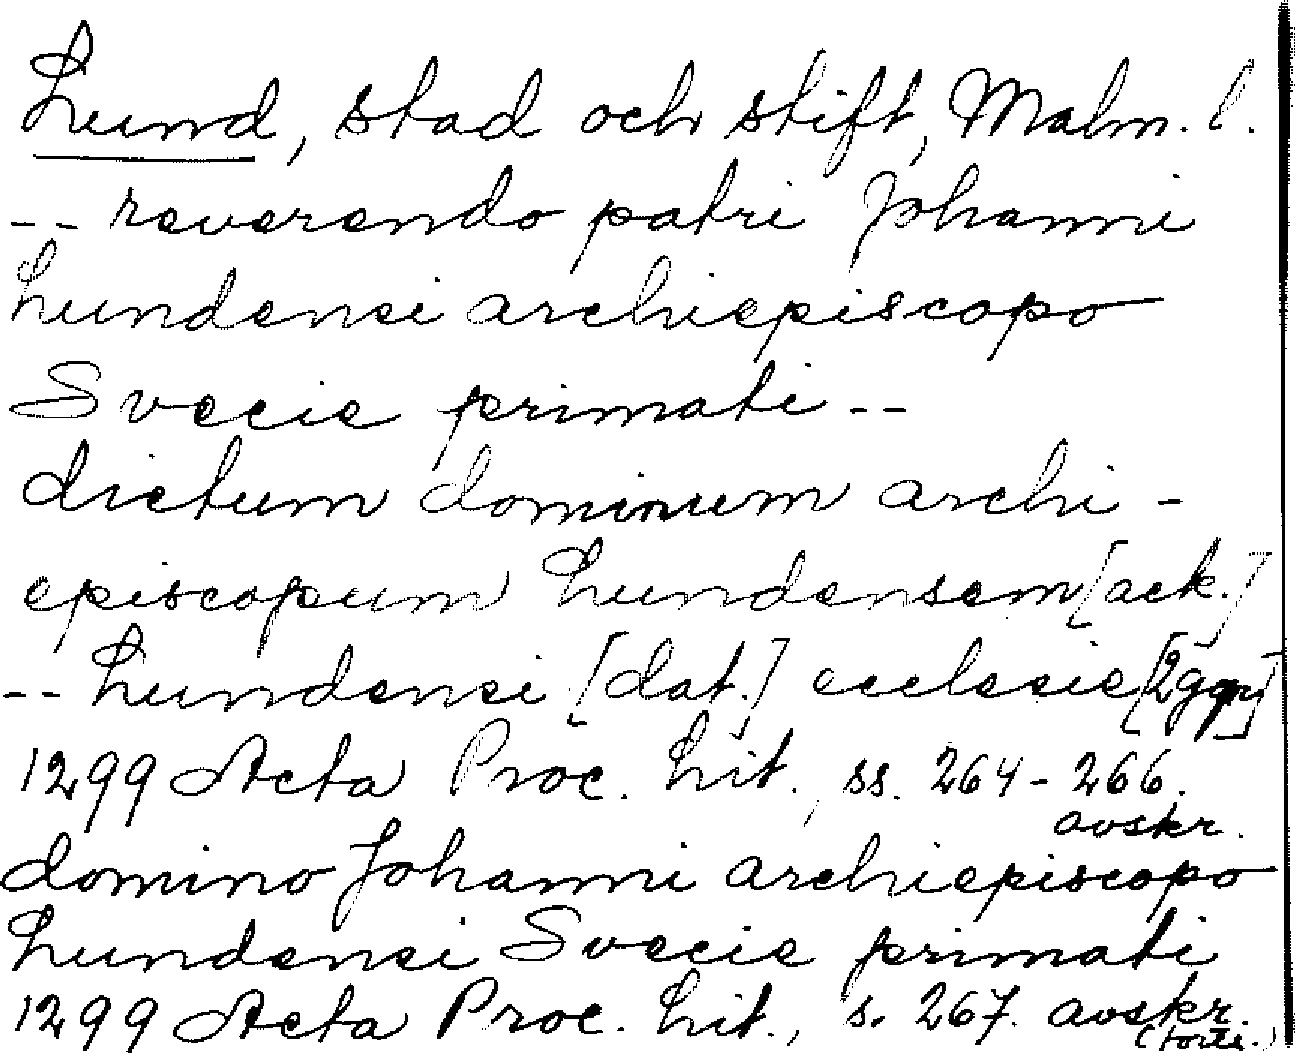 Lund, stad och stift, Malm. l.
-- reverendo patri Johanni
Lundensi archiepiscopo
Svecie primati --
dictum dominum archi-
episcopum Lundensem [ack.]
-- Lundensi [dat.] ecclesie [2ggr]
1299 Acta Proc. Lit., ss. 264-266.
avskr.
domino Johanni archiepiscopo
Lundensi Svecie primati
1299 Acta Proc. Lit., s. 267. avskr.
(forts.)